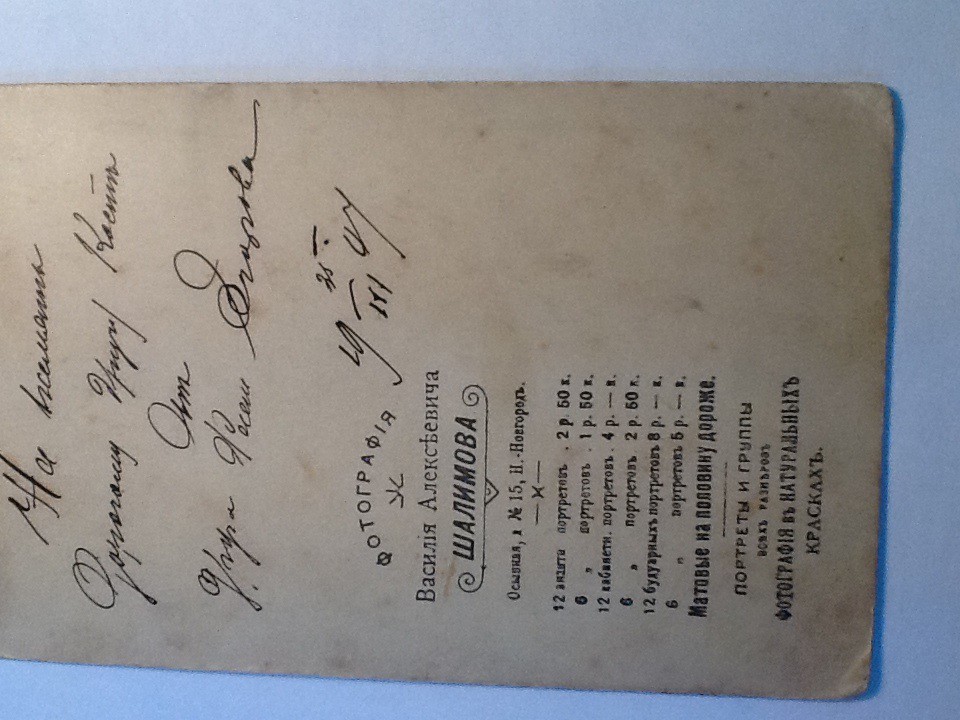 На
Дорогому Другу Костѣ
Отъ
Друга
19 25/III 17
ФОТОГРАФІЯ
Василія Алексѣевича
ШАЛИМОВА
Осыпная, д № 15, Н.-Новгородъ.
12 визита портретовъ . 2 р. 50 к.
6 „ портретовъ . 1 р. 50 к.
12 кабинетн. портретовъ . 4 р. — к.
6 „ портретовъ 2 р. 50 к.
12 будуарныхъ портретовъ 8 р. — к.
6 „ портретовъ 5 р. — к.
Матовые на половину дороже.
ПОРТРЕТЫ И ГРУППЫ
всѣхъ размѣровъ
ФОТОГРАФІЯ ВЪ НАТУРАЛЬНЫХЪ
КРАСКАХЪ.